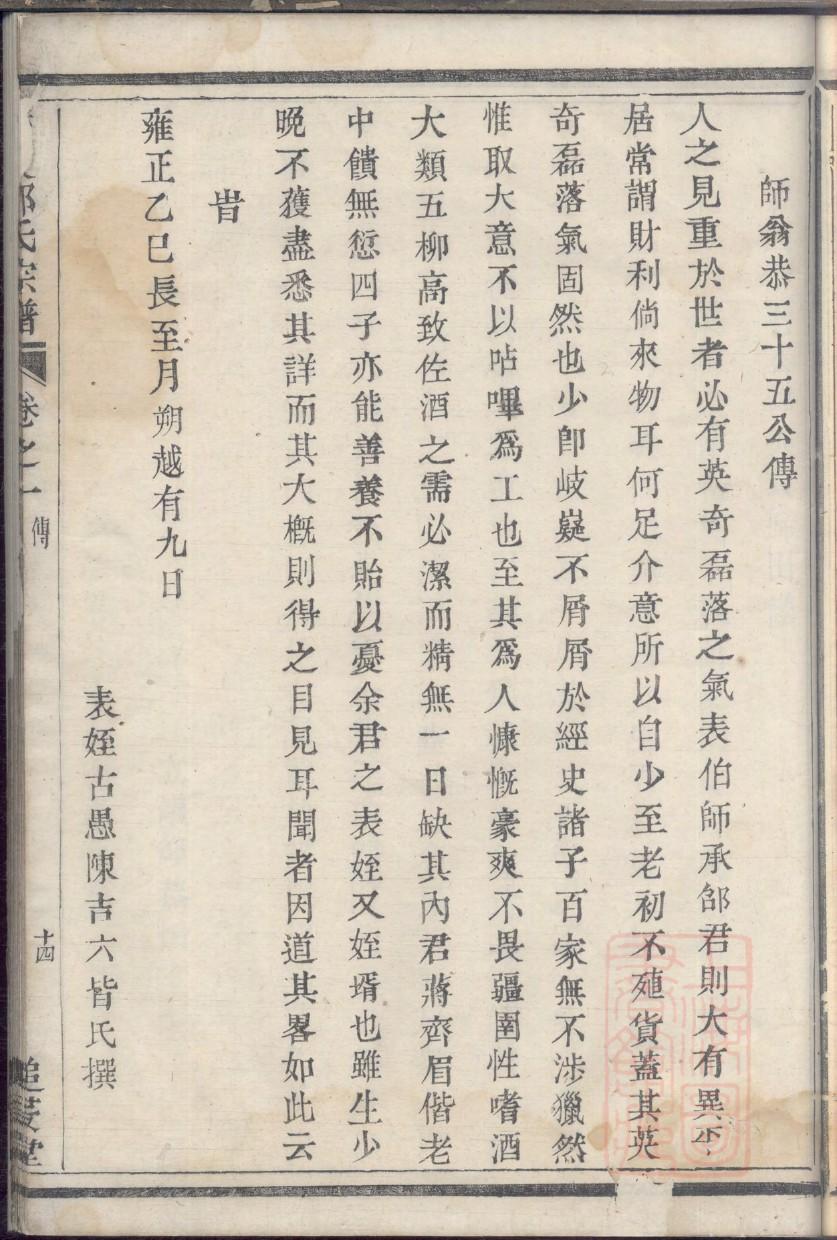 師翁恭三十五公傳
人之見重於世者必有英奇磊落之氣表伯師承郃君則大有異焉
居常謂財利倘來物耳何足介意所以自少至老初不殖貨蓋其英
奇磊落氣固然也少卽岐嶷不屑屑於經史諸子百家無不涉獵然
惟取大意不以呫嗶爲工也至其爲人慷慨豪爽不畏疆圉性嗜酒
大類五柳高致佐酒之需必潔而精無一日缺其內君蔣齊眉偕老
中饋無愆四子亦能善養不貽以憂余君之表姪又姪壻也雖生少
晚不獲盡悉其詳而其大槪則得之目見耳聞者因道其畧如此云
旹
雍正乙巳長至月朔越有九日
表姪古愚陳吉六皆氏撰
氏宗譜
卷之一
傳
十四
堂